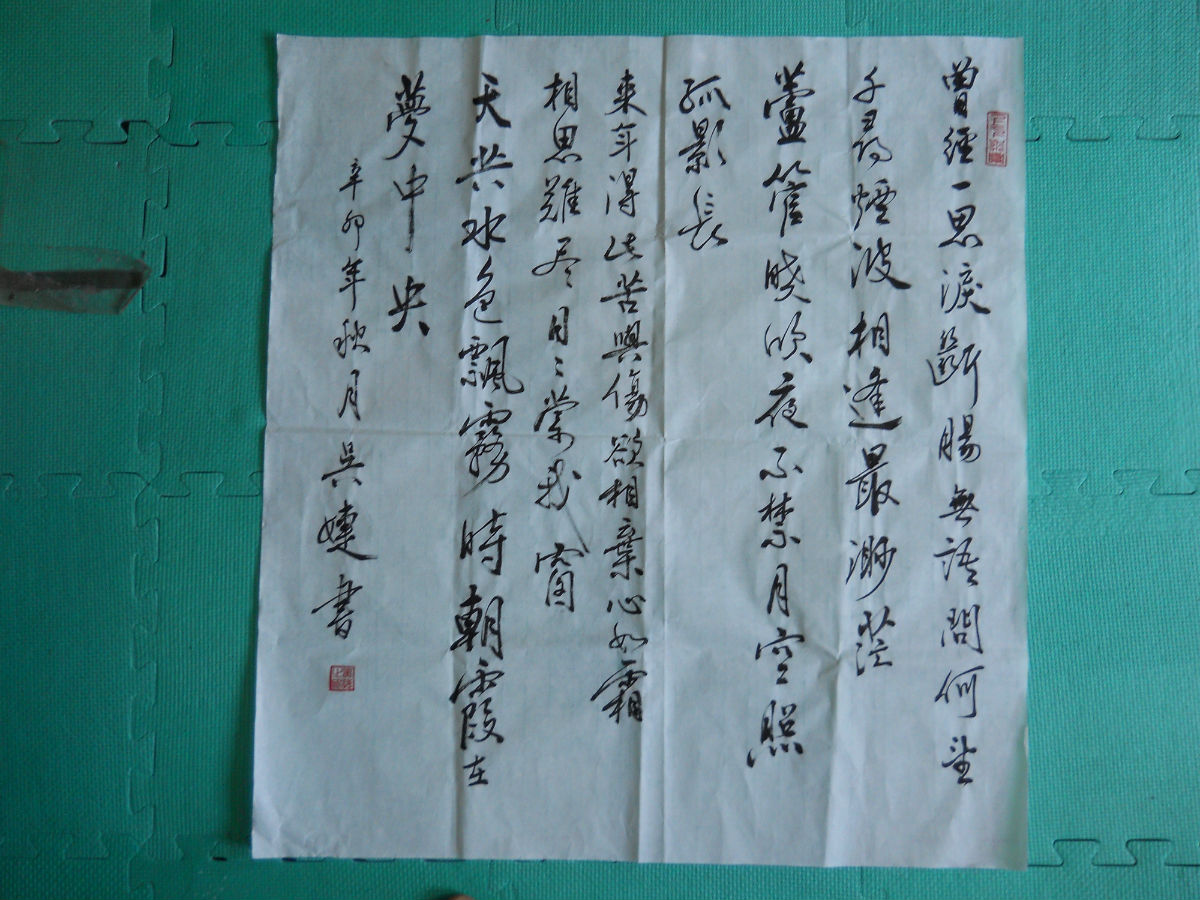 曾經一思淚斷腸無語問何望
千尋煙波相逢最渺茫
蘆管曉吹夜不禁月空照
孤影長
来年得此苦與傷欲相棄心如霜
相思難尽月〻常我窗
天共水色飄霧時朝霞在
夢中央
辛卯年秋月吳婕書